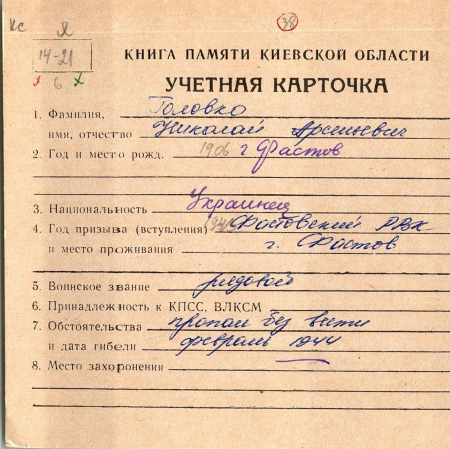 КС Я
38
14-21
6
КНИГА ПАМЯТИ КИЕВСКОЙ ОБЛАСТИ
УЧЕТНАЯ КАРТОЧКА
1. Фамилия, Головко
имя, отчество Николай Арсеньевич
2. Год и место рожд. 1906 г Фастов
3. Национальность Украинец
4. Год призыва (вступления) Фастовский РВК
и место проживания г. Фастов
5. Воинское звание рядовой
6. Принадлежность к КПСС. ВЛКСМ
7. Обстоятельства пропал без вести
и дата гибели февраль 1944
8. Место захоронения